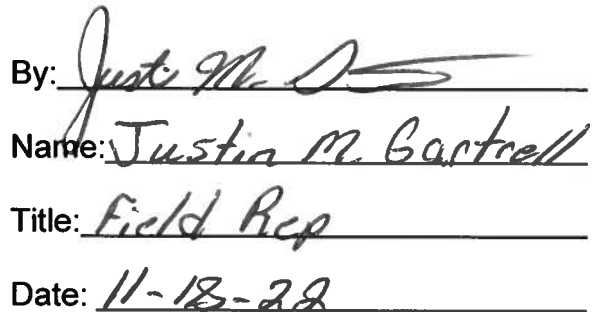 By: Justin M. G
Name: Justin M Gartrell
Title: Field Rep
Date: 11-18-22